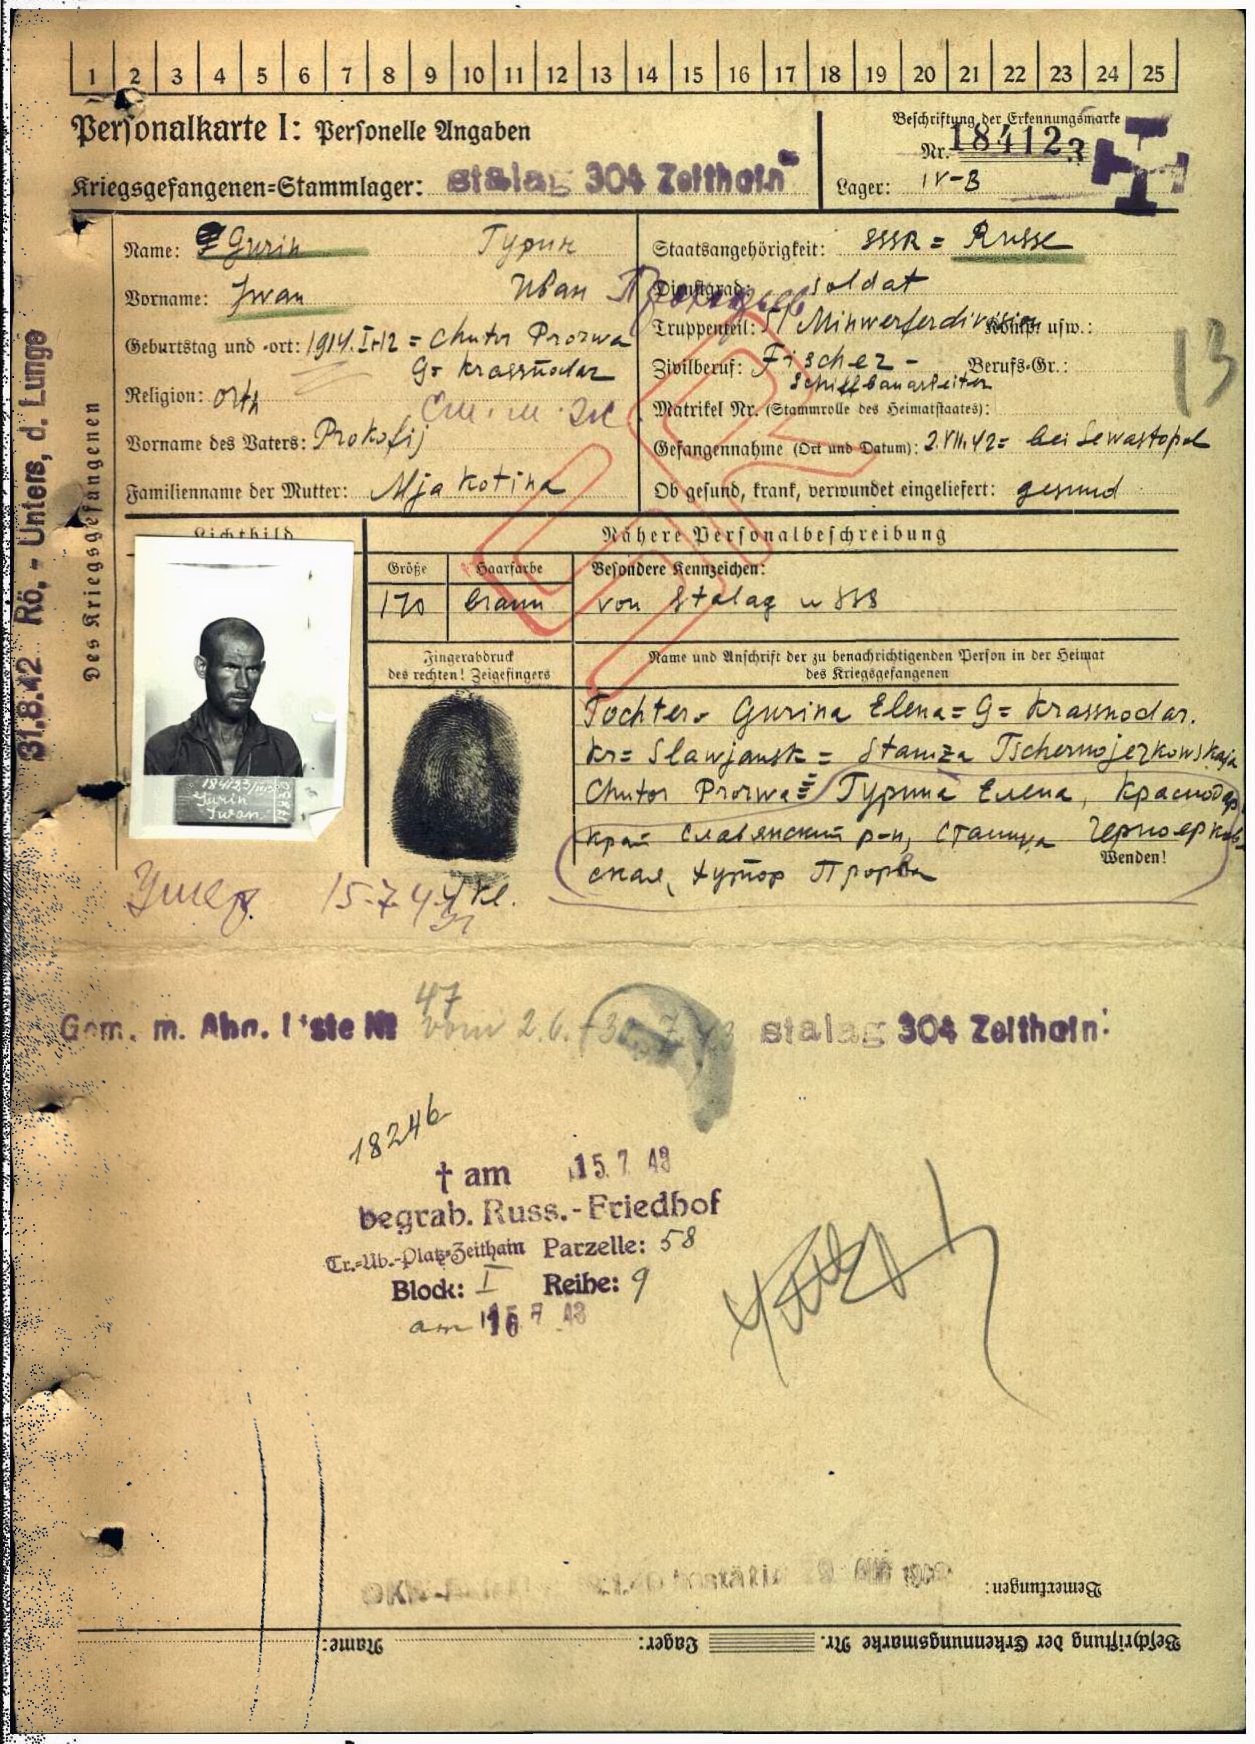 1 2 3 4 5 6 7 8 9 10 11 12 13 14 15 16 17 18 19 20 21 22 23 24 25
Personalkarte I: Personelle Angaben
Beschriftung der Erkennungsmarke
Nr. 184123
Kriegsgefangenen=Stammlager: stalag 304 Zeithain
Lager: IV-B
Des Kriegsgefangenen
31.8.42 Rö,- Unters, d. Lunge
Name: Gurin Гурин
Vorname: Jwan Иван
Geburtstag und -ort: 1914. = Chutor Prorwa
G= Krassnodar
Religion: orth
Vorname des Vaters: Prokofij
Familienname der Mutter: Mjakotina
Staatsangehörigkeit: SSSR = Russe
Dienstgrad: soldat
Truppenteil: Minwerferdivision Komp. usw.:
Zivilberuf: Fischer - Berufs-Gr.:
Schiffbauarbeiter
Matrikel Nr. (Stammrolle des Heimatstaates):
Gefangennahme (Ort und Datum): 2.VII.42= bei Sewastopol
Ob gesund, krank, verwundet eingeliefert: gesund
13
Lichtbild
Nähere Personalbeschreibung
Größe Haarfarbe Besondere Kennzeichen:
170 braun von Stalag
Fingerabdruck
des rechten! Zeigefingers
Name und Anschrift der zu benachrichtigenden Person in der Heimat
des Kriegsgefangenen
Tochter. Gurina Elena= G= Krassnodar.
kr= Slawjansk = Staniza Tschernojerkowskaja
Chutor Prorwa= Гурина Елена, Краснодар.
край Славянский р-н, станица Черноерков-
Wenden!
ская, хутор Прорва
184123
Gurin
Jwan
Умер. 15.7.43
Gem. m. Abg. Liste № 47 vom 2.6. stalag 304 Zeithain
18246
† am 15. 7. 43
begrab. Russ.-Friedhof
Tr.-Üb.-Platz-Zeithain Parzelle: 58
Block: I Reihe: 9
am 16 7 43
Bemerkungen:
Beschriftung der Erkennungsmarke Nr. Lager: Name: